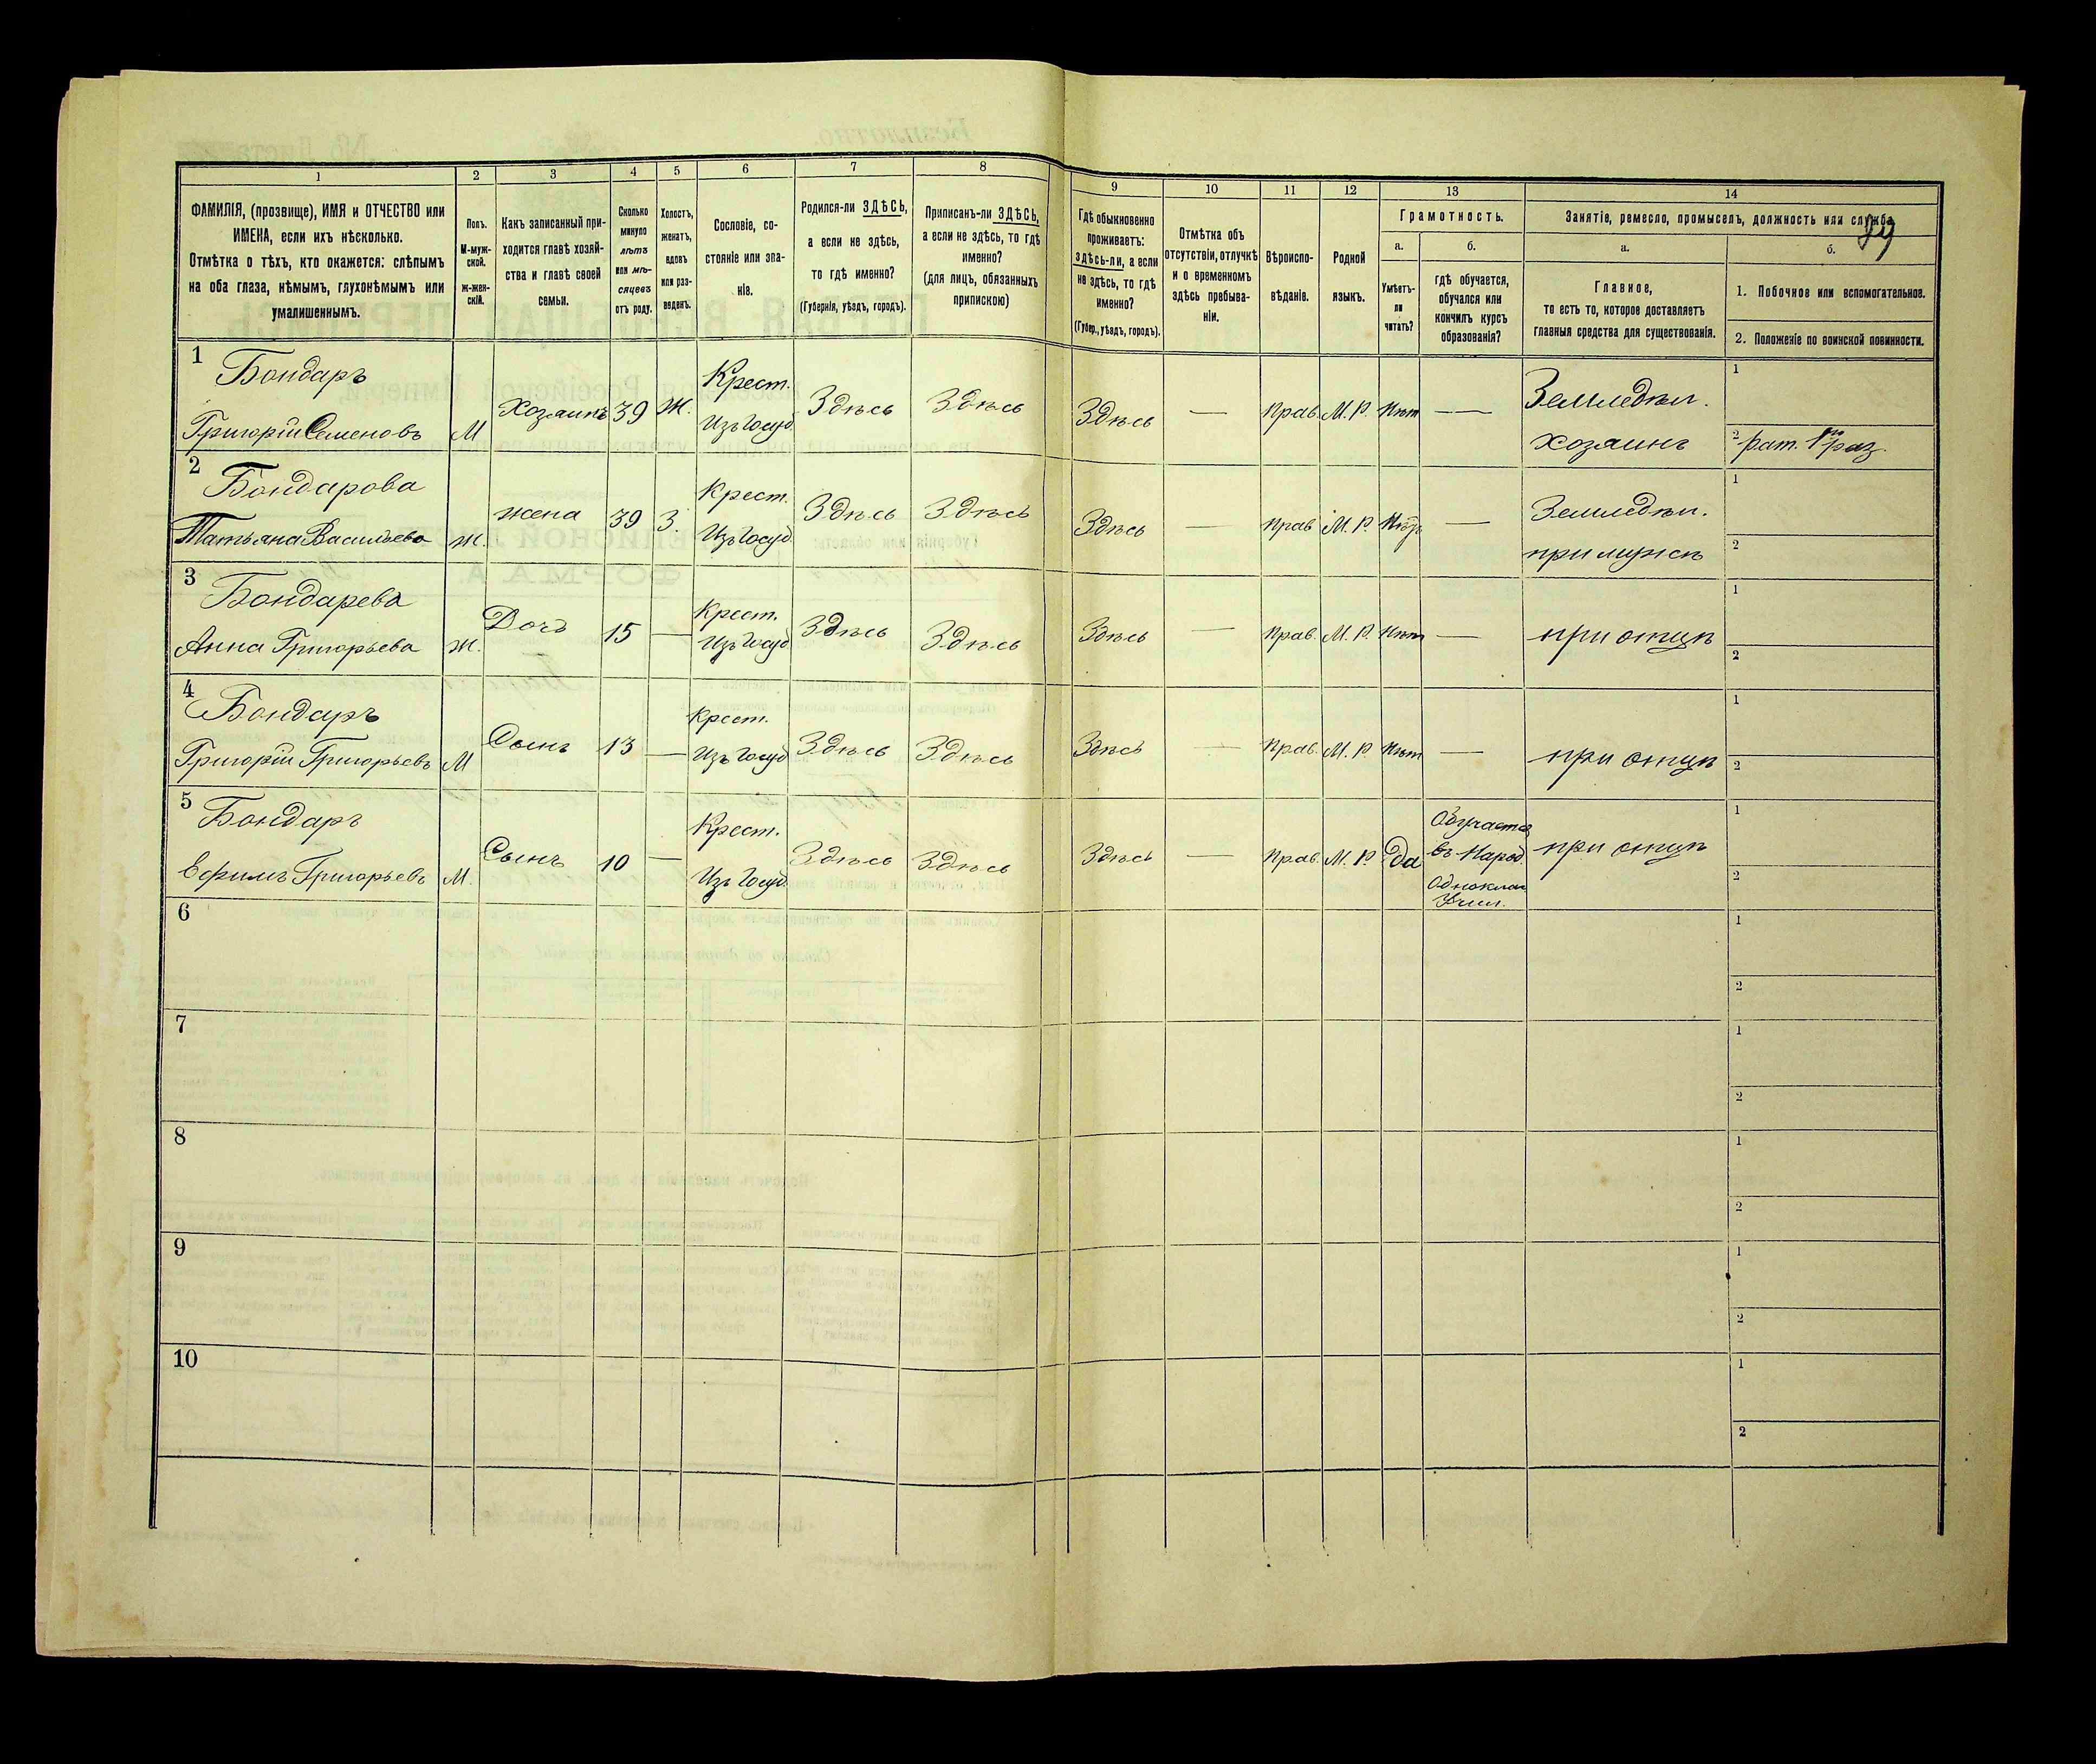 1
2
3
4
5
6
7
8
9
10
11
12
13
14
ФАМИЛІЯ, (прозвище), ИМЯ и ОТЧЕСТВО или
ИМЕНА, если ихъ нѣсколько.
Отмѣтка о тѣхъ, кто окажется: слѣпымъ
на оба глаза, нѣмымъ, глухонѣмымъ или
умалишеннымъ.
Полъ.
М-муж-
ской.
ж-жен-
скій.
Какъ записанный при-
ходится главѣ хозяй-
ства и главѣ своей
семьи.
Сколько
минуло
лѣтъ
или мѣ-
сяцевъ
отъ роду.
Холостъ,
женатъ,
вдовъ
или раз-
веденъ.
Сословіе, со-
стояніе или зва-
ніе.
Родился-ли ЗДѢСЬ,
а если не здѣсь,
то гдѣ именно?
(Губернія, уѣздъ, городъ).
Приписанъ-ли ЗДѢСЬ,
а если не здѣсь, то гдѣ
именно?
(для лицъ, обязанныхъ
припискою)
Гдѣ обыкновенно
проживаетъ:
здѣсь-ли, а если
не здѣсь, то гдѣ
именно?
(Губер., уѣздъ, городъ).
Отмѣтка объ
отсутствіи, отлучкѣ
и о временномъ
здѣсь пребыва-
ніи.
Вѣроиспо-
вѣданіе.
Родной
языкъ.
Грамотность.
а.
Умѣетъ-
ли
читать?
б.
гдѣ обучается,
обучался или
кончилъ курсъ
образованія?
Занятіе, ремесло, промыселъ, должность или служба.
89
а.
Главное,
то есть то, которое доставляетъ
главныя средства для существованія.
б.
1. Побочное или вспомогательное.
2. Положеніе по воинской повинности.
1
Бондаръ
Григорій Семеновъ
М
Хозяинъ
39
Ж.
Крест.
Изъ Госуд.
Здѣсь
Здѣсь
Здѣсь
—
Прав.
М. Р.
Нѣт
—
Земледѣл.
хозяинъ
1
2 рат. 1го раз.
2
Бондарова
Татьяна Васильева
Ж.
жена
39
З.
Крест.
Изъ Госуд.
Здѣсь
Здѣсь
Здѣсь
—
Прав
М. Р.
Нѣтъ
—
Земледѣл.
при мужѣ
1
2
3
Бондарева
Анна Григорьева
Ж.
Дочь
15
—
Крест.
Изъ Госуд
Здѣсь
Здѣсь
Здѣсь
—
Прав.
М. Р.
Нѣт
—
при отцѣ
1
2
4
Бондаръ
Григорій Григорьевъ
М
Сынъ
13
—
Крест.
Изъ Госуд
Здѣсь
Здѣсь
Здѣсь
—
Прав.
М. Р.
Нѣт
—
при отцѣ
1
2
5
Бондаръ
Ефимъ Григорьевъ
М.
Сынъ
10
—
Крест.
Изъ Госуд.
Здѣсь
Здѣсь
Здѣсь
—
Прав.
М. Р.
да
Обучается
въ Народ.
Одноклас
Учил.
при отцѣ
1
2
6
1
2
7
1
2
8
1
2
9
1
2
10
1
2